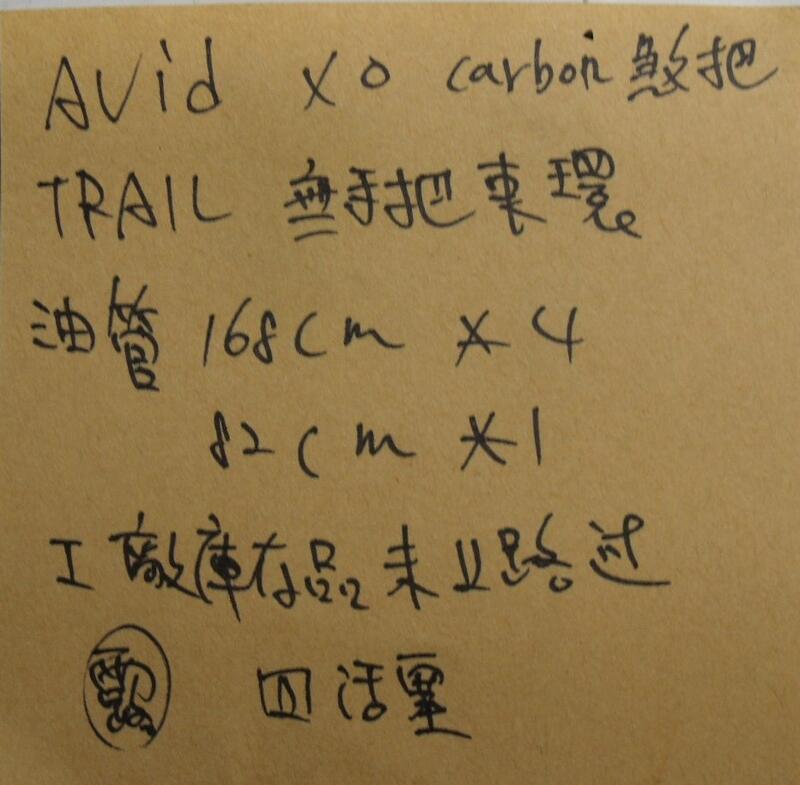 AVid XO carbon 煞把
TRAIL 無手把束環
油管 168cm X 4
82cm X 1
工廠庫存品未上路过
四活塞